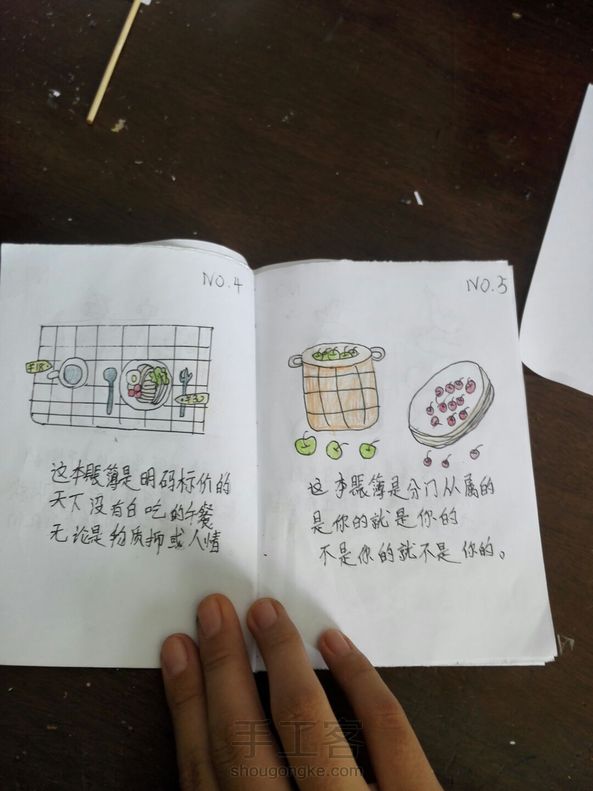 NO.4
¥18
¥30
这本账簿是明码标价的
天下没有白吃的午餐
无论是物质抑或人情
NO.5
这本账簿是分门从属的
是你的就是你的
不是你的就不是你的。
手工客
shougongke.com